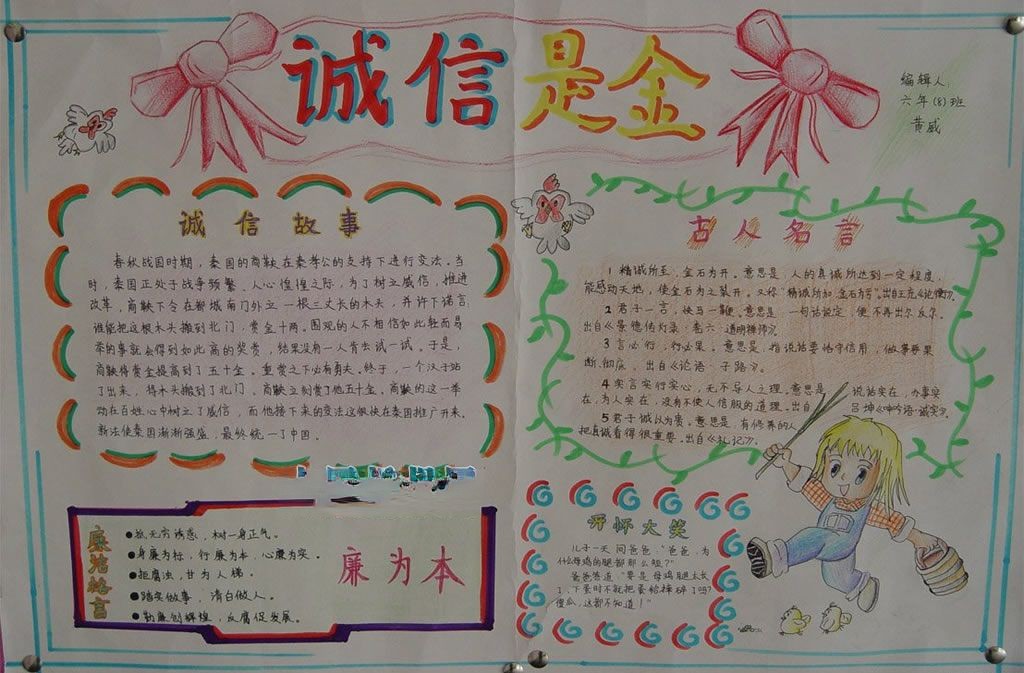 诚信是金
编辑人:
六年(8)班
黄威
诚信故事
春秋战国时期，秦国的商鞅在秦孝公的支持下进行变法。当
时，秦国正处于战争频繁、人心惶惶之际，为了树立威信，推进
改革，商鞅下令在都城南门外立一根三丈长的木头，并许下诺言：
谁能把这根木头搬到北门，赏金十两。围观的人不相信如此轻而易
举的事就会得到如此高的奖赏，结果没有一人肯出试一试。于是，
商鞅将赏金提高到了五十金。重赏之下必有勇夫。终于，一个汉子站
了出来，将木头搬到了北门。商鞅立刻赏了他五十金。商鞅的这一举
动在百姓心中树立了威信，而他接下来的变法这很快在秦国推广开来。
新法使秦国渐渐强盛，最终统一了中国。
古人名言
1 精诚所至，金石为开。意思是，人的真诚所达到一定程度，
能感动天地，使金石为之裂开。又称"精诚所加，金石为亏。出自王充《论衡》。
2 君子一言，快马一鞭。意思是 一句话说定，便不再出尔反尔。
出自《景德传灯录·卷六·道明禅师》。
3 言必行，行必果。意思是，指说话要恪守信用，做事要果
断、彻底。出自《论语·子路》。
4 实言实行实心，无不孚人之理。意思是 说话实在，办事实
在，为人实在，没有不使人信服的道理。出自 吕坤《呻吟语·诚实》。
5 君子诚以为贵。意思是，有修养的人
把真诚看得很重要。出自《礼记》。
廉洁格言
●抵无穷诱惑，树一身正气。
●身廉为标，行廉为本，心廉为实。
●拒腐浊，甘为人梯。
●踏实做事，清白做人。
●勤廉创辉煌，反腐促发展。
廉为本
开怀大笑
儿子一天问爸爸，"爸爸，为
什么母鸡的腿都那么短？"
爸爸答道"要是母鸡腿太长
了，下蛋时不就把蛋给摔碎了吗？
傻瓜，这都不知道！"